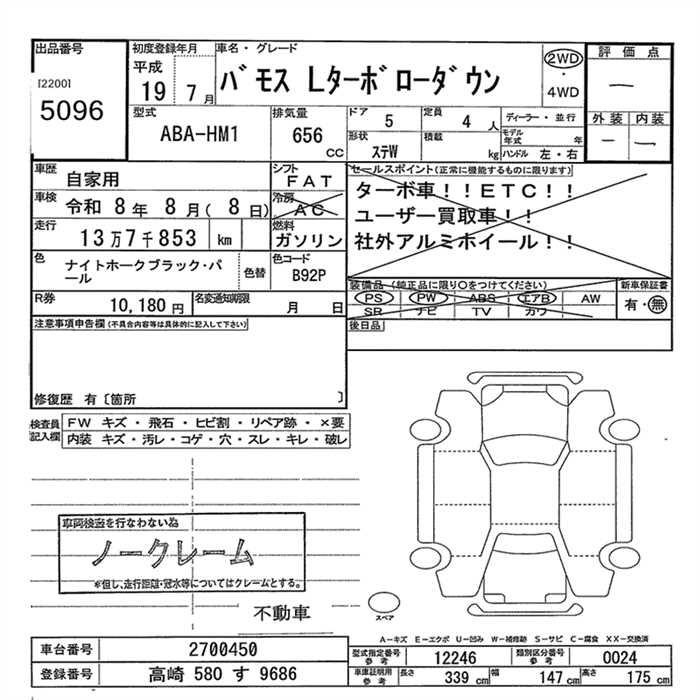 出品番号
I2200I
5096
初度登録年月
平成
19 7 月
車名・グレード
バモス Lターボローダウン
2WD
・
4WD
評価点
―
外装 内装
― ―
型式
ABA-HM1
排気量
656
CC
ドア
5
定員
4 人
ディーラー・並行
形状
ステW
積載
kg
モデル年式
年
ハンドル 左・右
車歴
自家用
シフト
FAT
車検
令和 8年 8月( 8日)
冷房
AC
走行
13万7千853 km
燃料
ガソリン
色
ナイトホークブラック・パール
色替
色コード
B92P
R券
10,180 円
名変通知期限
月 日
セールスポイント(正常に機能するものに限ります)
ターボ車!!ETC!!
ユーザー買取車!!
社外アルミホイール!!
装備品(純正品に限り○をつけてください)
PS PW ABS エアB AW
SR ナビ TV カワ
新車保証書
有・無
後日品
注意事項申告欄(不具合内容等は具体的に記入して下さい)
修復歴 有〔箇所 〕
検査員
記入欄
FW キズ・飛石・ヒビ割・リペア跡・×要
内装 キズ・汚レ・コゲ・穴・スレ・キレ・破レ
車両検査を行なわない為
ノークレーム
*但し、走行距離・冠水等についてはクレームとする。
不動車
スペア
A―キズ E―エクボ U―凹み W―補修跡 S―サビ C―腐食 XX―交換済
車台番号
2700450
登録番号
高崎 580 す 9686
型式指定番号
参考
12246
類別区分番号
参考
0024
車庫証明用
参考
長さ
339 cm
幅
147 cm
高さ
175 cm